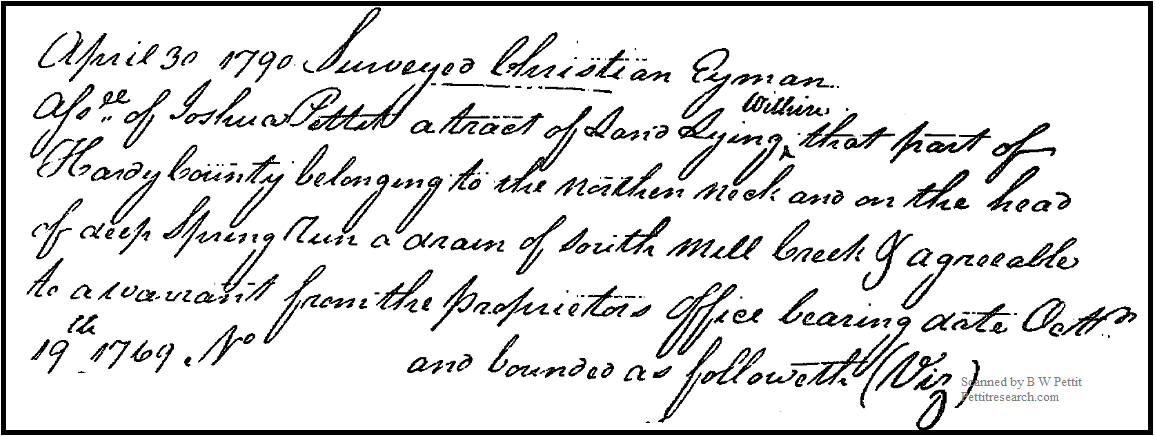 April 30 1790 Surveyed Christian Eyman
Ass.ee of Joshua Pettit a tract of Land Lying Within that part of
Hardy County belonging to the northen neck and on the head
of deep Spring Run a drain of South Mill Creek & agreeable
to a warrant from the proprietors office bearing date Octbr
19th 1769. No and bounded as followeth (Viz)
Scanned by B W Pettit
Pettitresearch.com